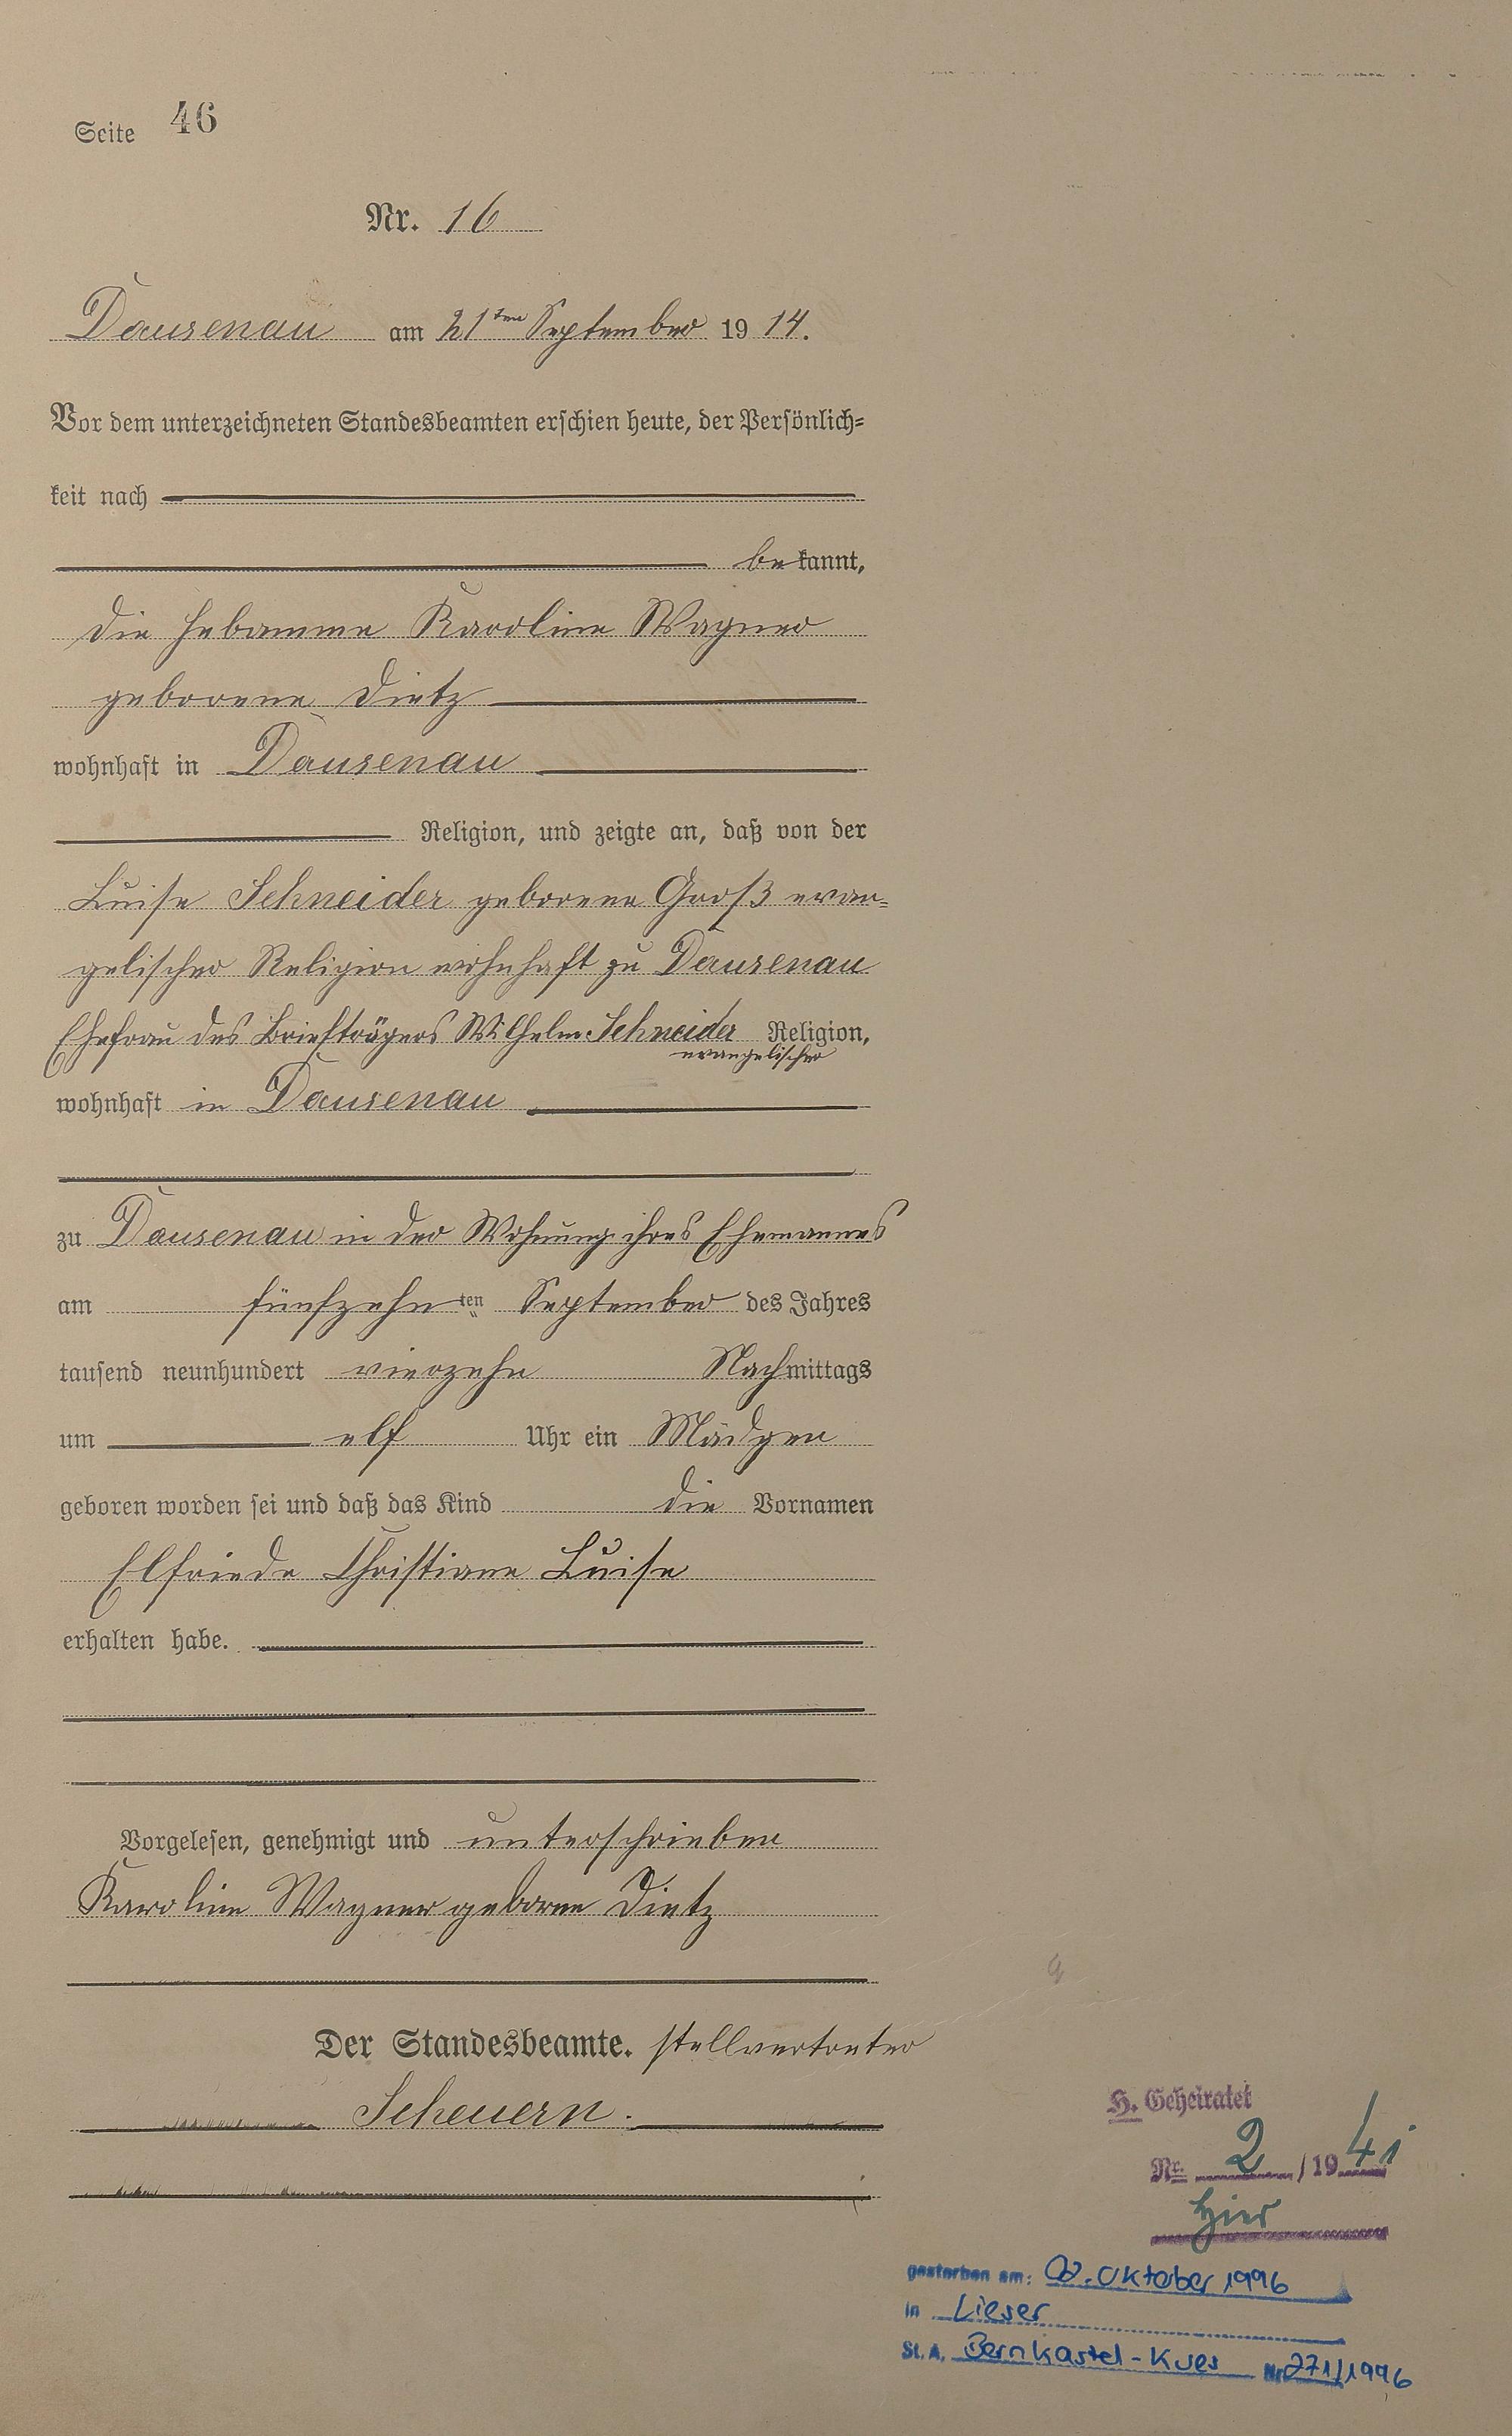 Seite 46
Nr. 16
Dausenau am 21ten September 1914.
Vor dem unterzeichneten Standesbeamten erschien heute, der Persönlich=
keit nach
bekannt,
die Hebamme Karoline Wagner
geborene Dietz
wohnhaft in Dausenau
Religion, und zeigte an, daß von der
Luise Schneider geborene Groß evan=
gelischer Religion wohnhaft zu Dausenau
Ehefrau des Briefträgers Wilhelm Schneider Religion,
evangelischer
wohnhaft in Dausenau
zu Dausenau in der Wohnung ihres Ehemannes
am fünfzehnten September des Jahres
tausend neunhundert vierzehn Nachmittags
um elf Uhr ein Mädgen
geboren worden sei und daß das Kind die Vornamen
Elfriede Christiane Luise
erhalten habe.
Vorgelesen, genehmigt und unterschrieben
Karoline Wagner geborne Dietz
Der Standesbeamte. stellvertreter
Scheuern.
H. Geheiratet
Nr. 2 / 1941
hier
gestorben am: Oktober 1996
in Lieser
St. A. Bernkastel-Kues Nr 271/1996